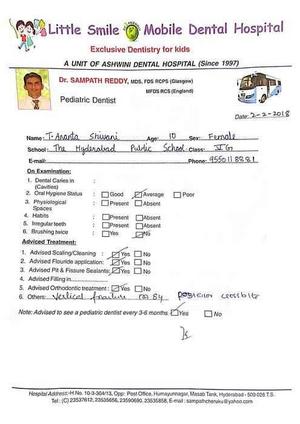 Little Smile Mobile Dental Hospital
Exclusive Dentistry for kids
A UNIT OF ASHWINI DENTAL HOSPITAL (Since 1997)
Dr. SAMPATH REDDY, MDS, FDS RCPS (Glasgow)
MFDS RCS (England)
Pediatric Dentist
Date: 2-2-2018
Name: T. Ananta Shivani Age: 10 Sex: Female
School: The Hyderabad Public School Class:
E-mail: Phone: 9550118881
On Examination:
1. Dental Caries in :
(Cavities)
2. Oral Hygiene Status : Good Average Poor
3. Physiological : Present Absent
Spaces
4. Habits : Present Absent
5. Irregular teeth : Present Absent
6. Brushing twice : Yes No
Adviced Treatment:
1. Advised Scaling/Cleaning : Yes No
2. Advised Flouride application: Yes No
3. Advised Pit & Fissure Sealants: Yes No
4. Advised Filling in
5. Advised Orthodontic treatment : Yes No
6. Others: Vertical
Note: Advised to see a pediatric dentist every 3-6 months. Yes No
Hospital Address: H No. 10-3-304/13, Opp: Post Office, Humayunnagar, Masab Tank, Hyderabad - 500 028 T.S.
Tel: (C) 23537612, 23535656, 23590690, 23535858, E-mail : sampathcheruku@yahoo.com